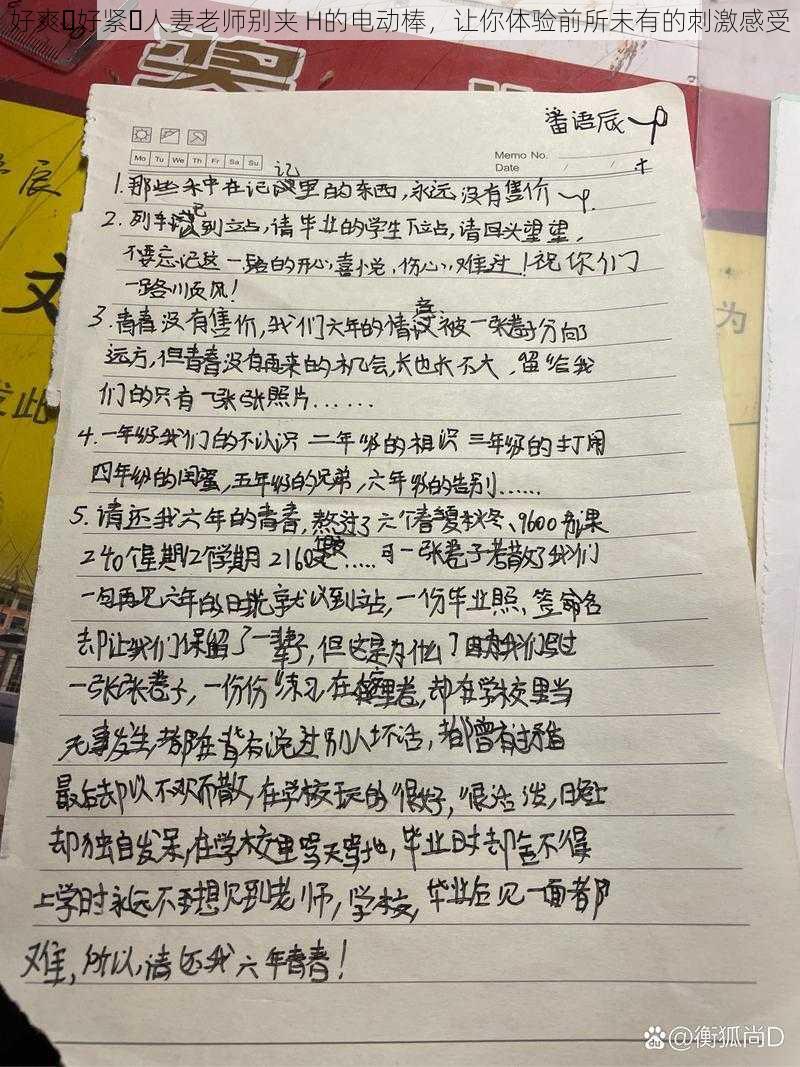 好爽 好紧 人妻老师别夹 H的电动棒，让你体验前所未有的刺激感受
番语辰
Mo Tu We Th Fr Sa Su
Memo No.
Date / /
记
1.那些 中在记 里的东西,永远没有售价
2.列车 到立占,请毕业的学生下立占,请回头望望,
不要忘记这一路的开心,喜悦,伤心,难过!祝你们
一路川页风!
3.青春没有售价,我们六年的情 被一张卷子分向
远方,但青春没有再来的机会,长也长不大,留给我
们的只有一张张照片......
4.一年级我们的不认识 二年级的相识 三年级的打闹
四年级的闺蜜,五年级的兄弟,六年级的告别......
5.请还我六年的青春,熬过了六个春夏秋冬、9600 课
240个星期12个学期2160 ..... 一张卷子 散了我们
一句再见六年的时光 到立占,一份毕业照,签 名
却让我们保留了一辈子,但这是为什么? 我们 过
一张张卷子,一份份练习在 卷,却在学校里当
无事发生,都在背后说过别人坏话,都曾有过矛盾
最后却以不欢而散,在学校玩的很好,很活泼,日 上
却独自发呆,在学校里骂天骂地,毕业时却舍不得
上学时永远不想见到老师,学校,毕业后见一面都
难,所以,请还我六年青春!
文
为
发此
辰
Bai du @衡狐尚D